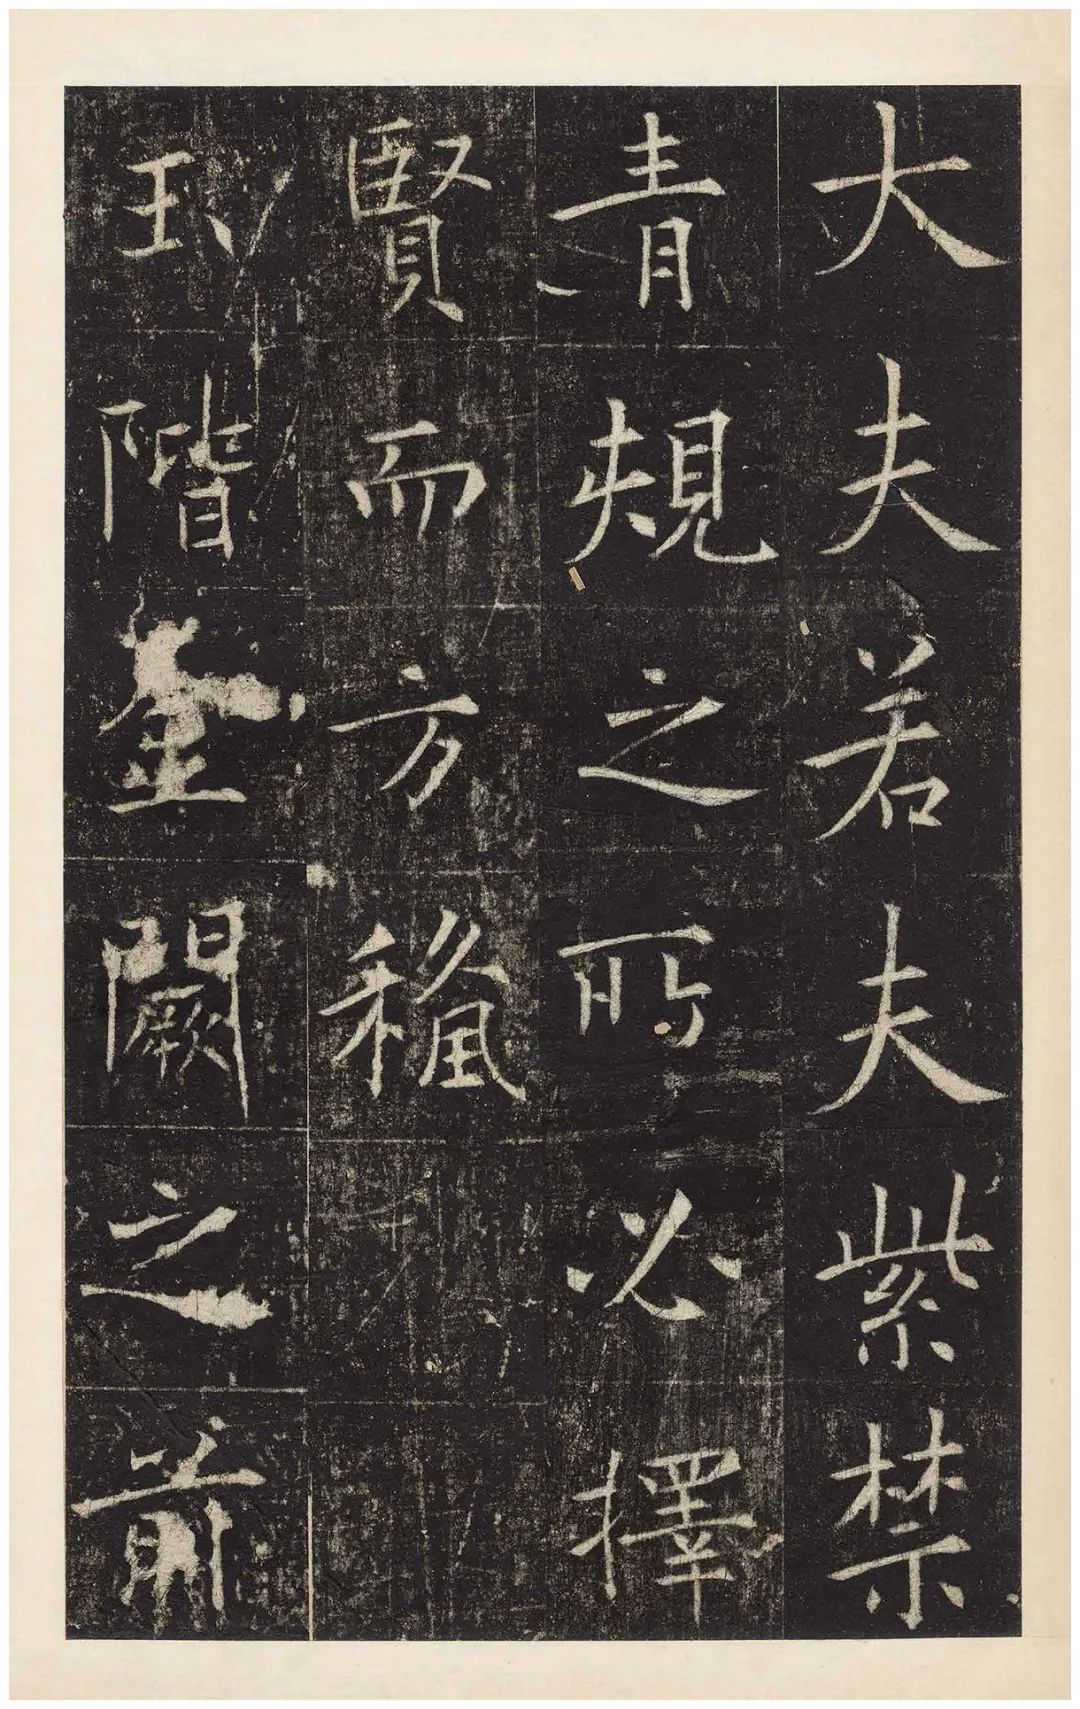 大夫若夫紫禁
青規之所必擇
賢而方稱
玉階金闕之前